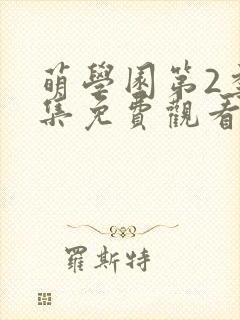 萌學園第2季
集免費觀看
羅斯特